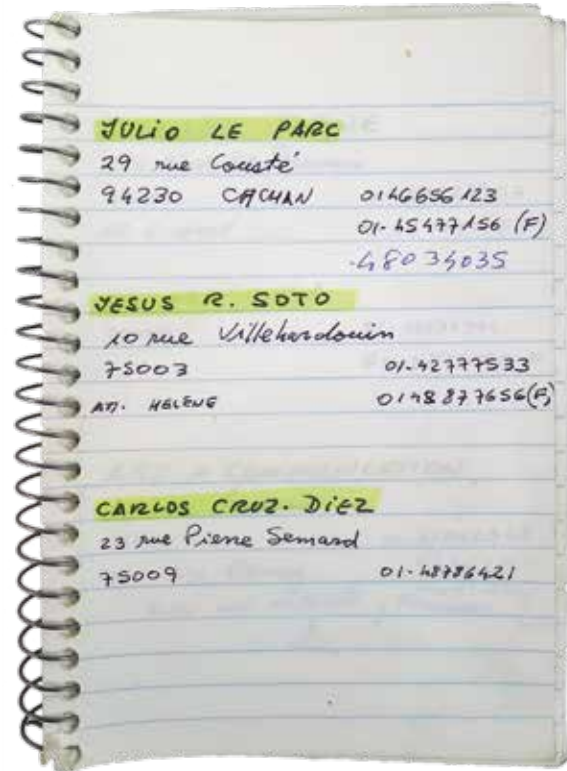 JULIO LE PARC
29 rue Cousté
94230 CACHAN 0146656123
01-45477156 (F)
48034035
JESUS R. SOTO
10 rue Villehardouin
75003 01-42777533
ATT. HELENE 0148877656(F)
CARLOS CRUZ-DIEZ
23 rue Pierre Semard
75009 01-48786421